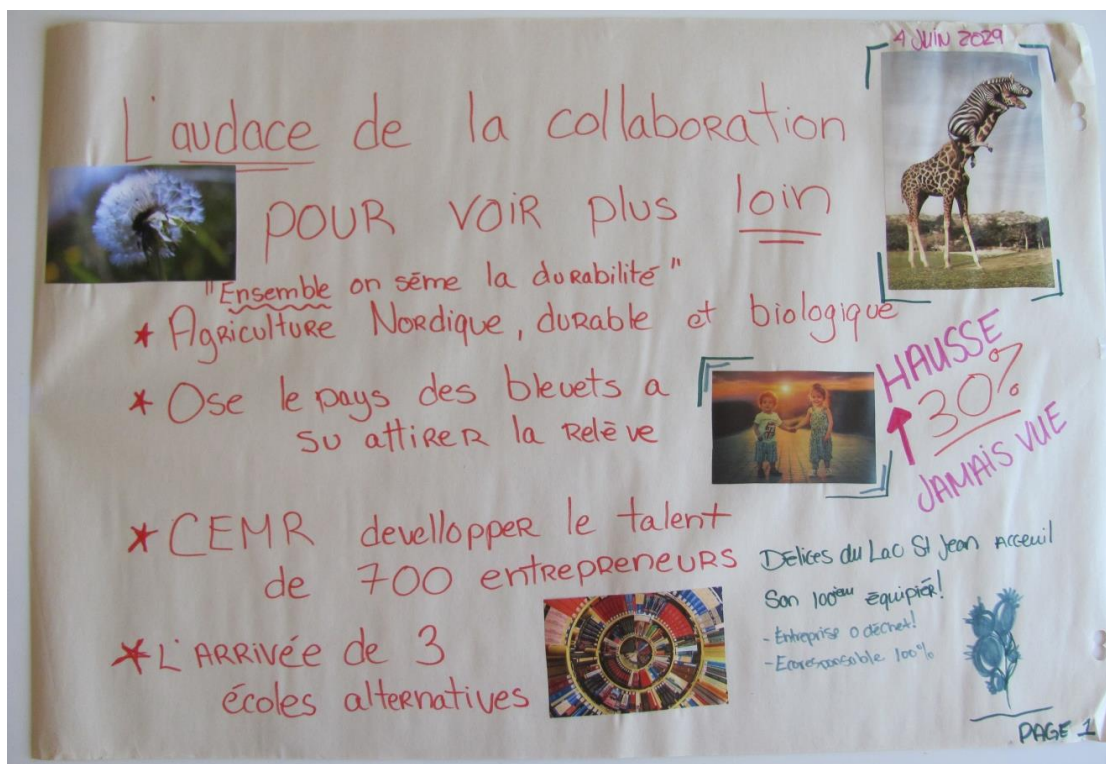 4 JUIN 2029
L'audace de la collaboration
pour voir plus loin
"Ensemble on sème la durabilité"
* Agriculture Nordique, durable et biologique
* Ose le pays des bleuets a
su attirer la relève
HAUSSE
30%
JAMAIS VUE
* CEMR devellopper le talent
de 700 entrepreneurs
* L'arrivée de 3
écoles alternatives
Délices du Lac St Jean acceuil
Son 100ieu équipier!
- Entreprise 0 déchet!
- Ecoresponsable 100%
PAGE 1